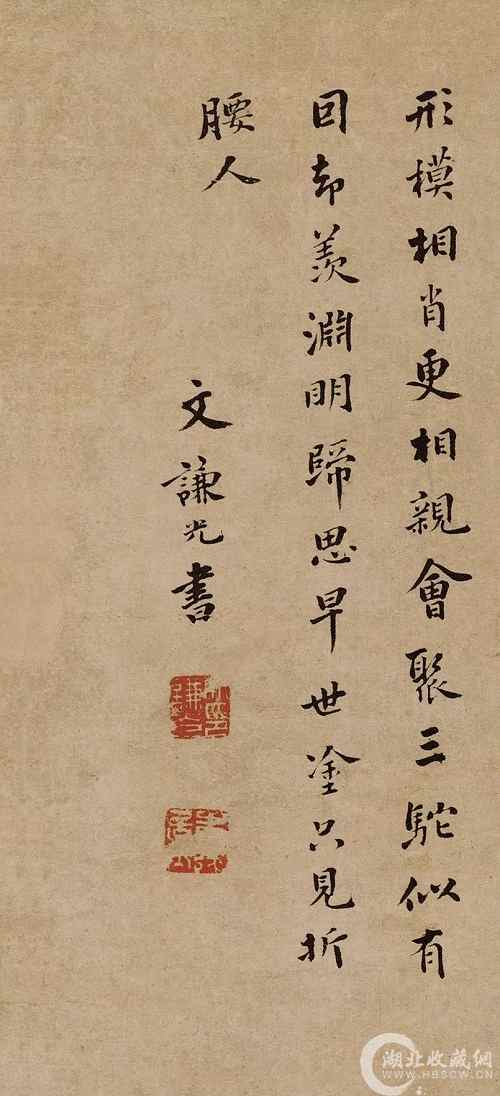 形模相肖更相親會聚三駝似有
回却羨淵明歸思早世塗只見折
腰人
文謙光書
湖北收藏网
WWW.HBSCW.CN